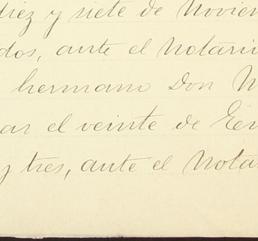 diez y siete de Noviem
dos, ante el Notari
hermano Don
ar el veinte de En
y tres, ante el Nota